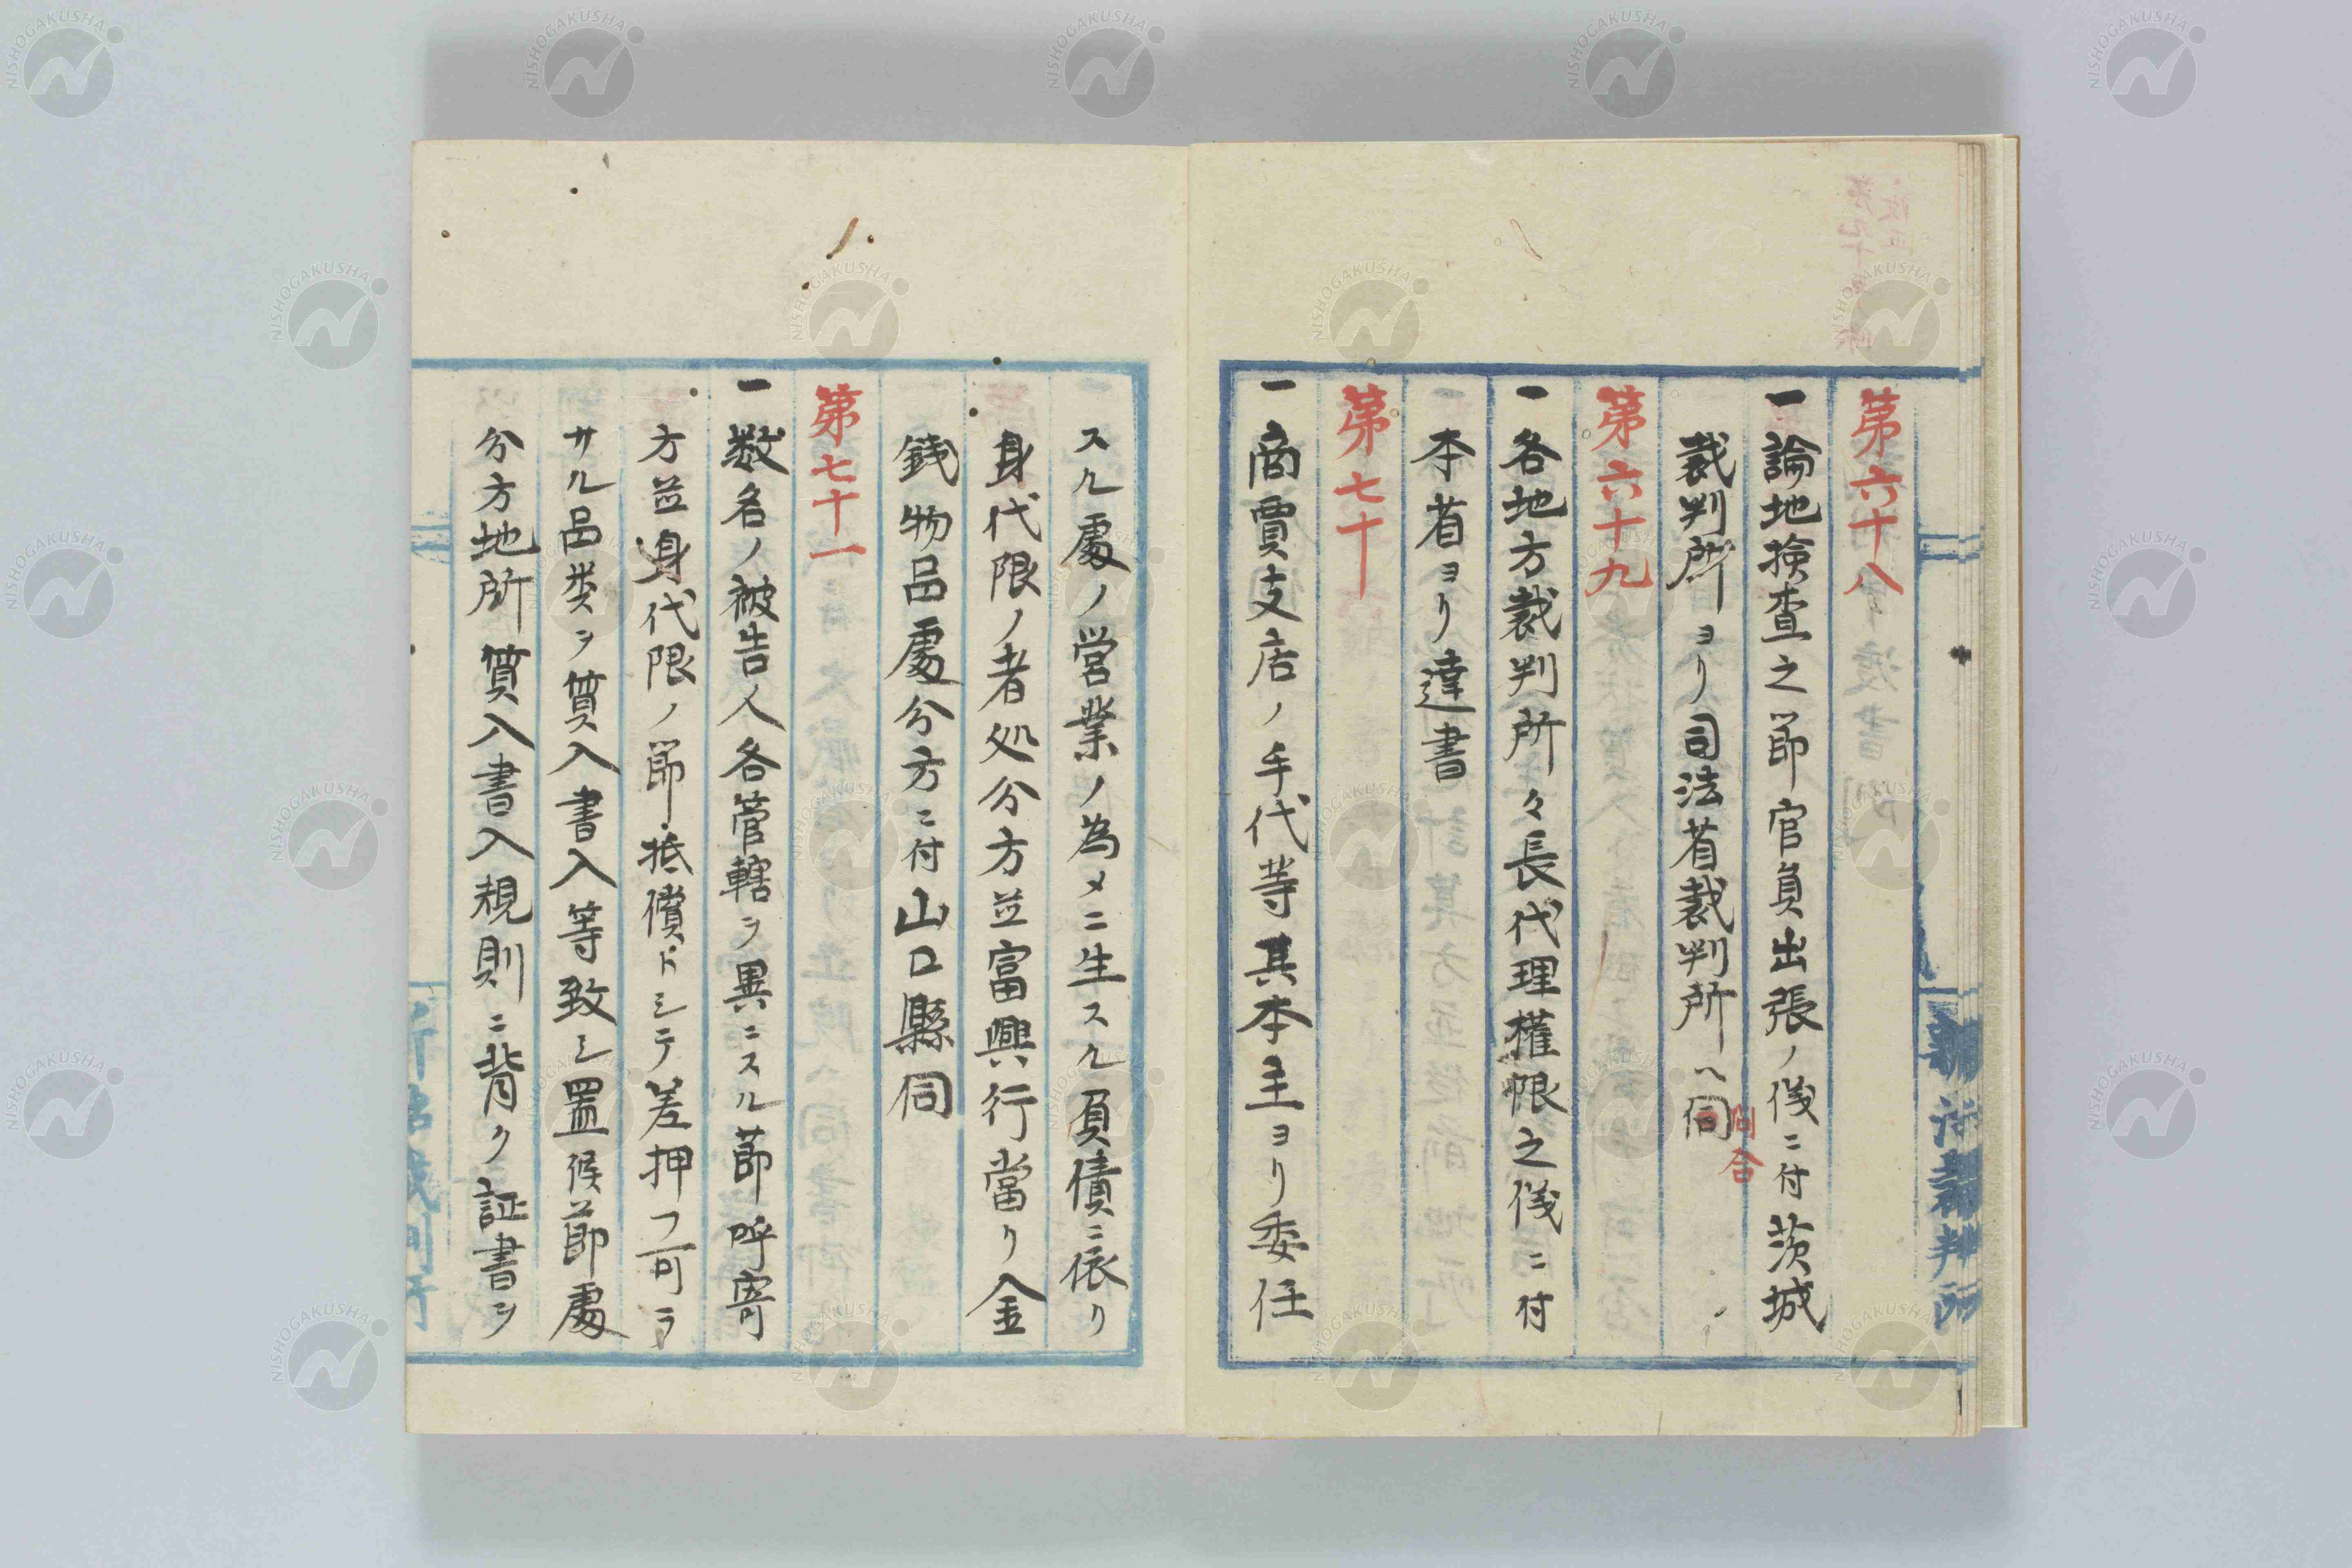 第六十八
一論地検査之節官員出張ノ儀ニ付茨城
裁判所ヨリ司法省裁判所ヘ伺
問合
第六十九
一各地方裁判所々長代理權限之儀ニ付
本省ヨリ達書
第七十
一商賈支店ノ手代等其本主ヨリ委任
スル處ノ営業ノ為メニ生スル負債ニ依リ
身代限ノ者処分方並富興行當リ金
錢物品處分方ニ付山口縣伺
第七十一
一数名ノ被告人各管轄ヲ異ニスル節呼寄
方並身代限ノ節抵償トシテ差押フ可ラ
サル品类ヲ質入書入等致シ置候節處
分方地所質入書入規則ニ背ク証書ヲ
NISHOGAKUSHA